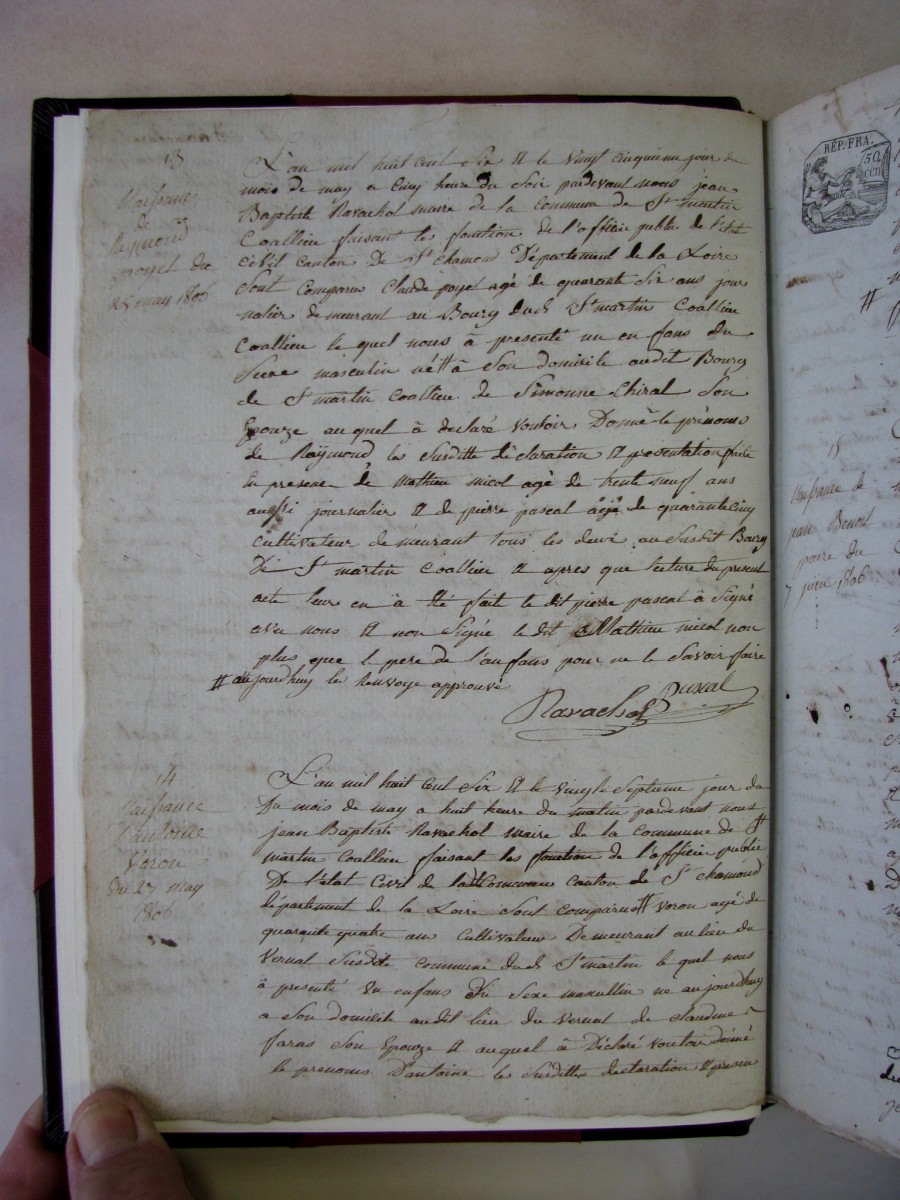 13
Naissance
de
Raymond
poyet du
25 may 1806
L'an mil huit cent Six et le Vingt cinquieme jour du
mois de may a Cinq heure du Soir pardevant nous jean
Baptiste Ravachol maire de la commune de St martin
Coallieu faisant les fonction de l'officier public de l'état
civil canton De St chamond Département de la Loire
Sont Comparu Claude poyet agé de quarante Six ans jour
nalier demeurant au Bourg dudt St martin Coallieu
Coallieu le quel nous à presenté un en fans du
Sexe masculin né # à Son domicile audit Bourg
de St martin Coallieu de Simonne Chiral Son
Epouze au quel à declaré Vouloir Donné le prénoms
de Raÿmond les Susditte déclaration et présentation faite
en presence de Mathieu nicol agé de trente neuf ans
aussi journalier et de pierre pascal agé de quarante cinq
cultivateur demeurant tous les deux au Susdit Bourg
De St martin Coallieu et apres que lecture du present
acte leur en à été faite le dit pierre pascal à Signé
avec nous et non Signé le dit Mathieu nicol non
plus que le pere de l'anfans pour ne le Savoir faire
# aujourdhuy le Renvoye approuvé
Ravachol
14
Naissance
d'antoine
Voron
du 27 may
1806
L'an mil huit Cent Six et le Vingte Septieme jour du
Du mois de may a huit heure du matin pardevant nous
jean Baptiste Ravachol Maire de la Commune de St
martin Coallieu faisant les fonction de l'officier publie
De l'état Civil de ladt Commune canton de St chamond
département de la Loire Sont comparus # Voron agé de
quarante quatre ans Cultivateur Demeurant au lieu du
Vernat Susdite commune dudt St martin le quel nous
à presenté un enfans du Sexe masculin ne aujourdhuy
a Son domicile audit lieu du Vernat de Claudine
faras Son Epouze et auquel à Déclaré Vouloir donné
le prenoms D'antoine les Susdittes déclaration et presen
REP. FRA.
50
cen
15
Naissance de
jean Benoit
paire du
7 juin 1806